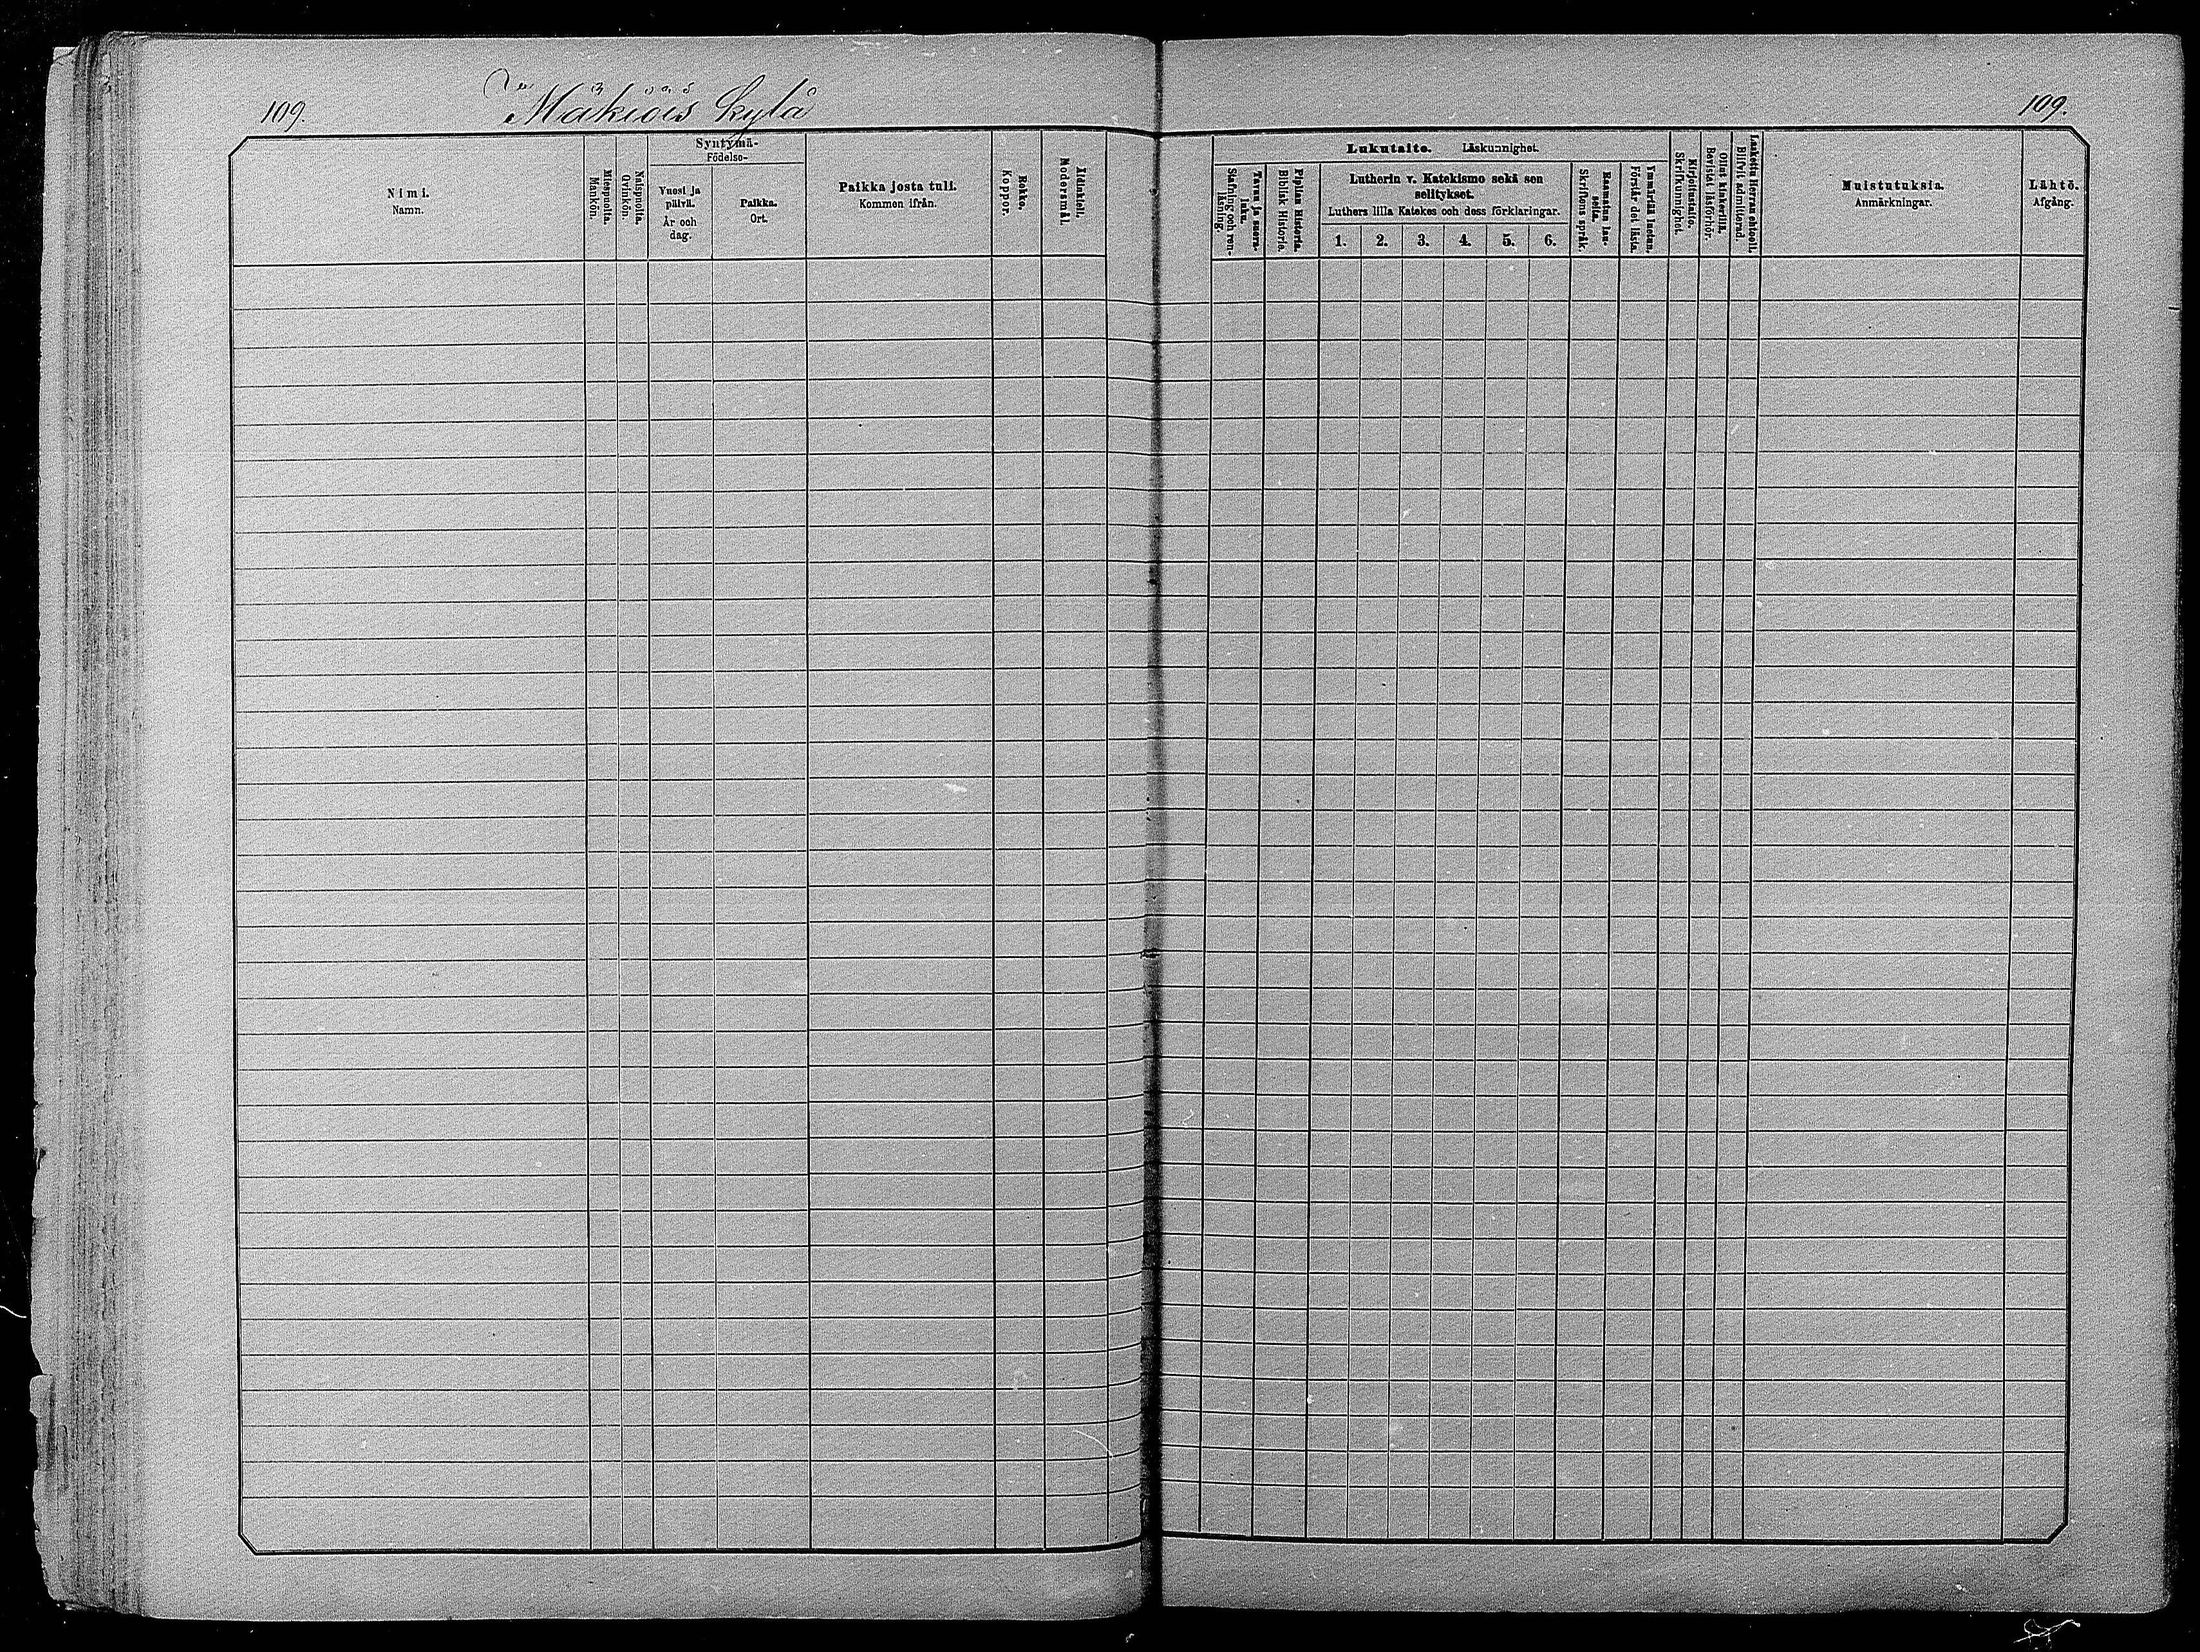 109.
Mäkiöis kylä
109.
Nimi.
Namn.
Miespuolia.
Mankön.
Naispuolia.
Qvinkön.
Syntymä-
Födelse-
Vuosi ja
päivä.
År och
dag.
Paikka.
Ort.
Paikka josta tuli.
Kommen ifrån.
Rokko.
Koppor.
Äidinkieli.
Modersmål.
Lukutaito. Läskunnighet.
Tavuu ja suora-
luku.
Stafning och ren-
läsning.
Piplian Historia.
Biblisk Historie.
Lutherin v. Katekismo sekä sen
selitykset.
Luthers lilla Katekes och dess förklaringar.
1. 2. 3. 4. 5. 6.
Raamatun lau-
seita.
Skriftens språk.
Ymmärtää luetun.
Förstår det lästa.
Kirjoitustaito.
Skrifkunnighet.
Ollut kinkerillä.
Bevistat läsförhör.
Laskettu Herran ehtool.
Blifvit admitterad.
Muistutuksia.
Anmärkningar.
Lähtö.
Afgång.